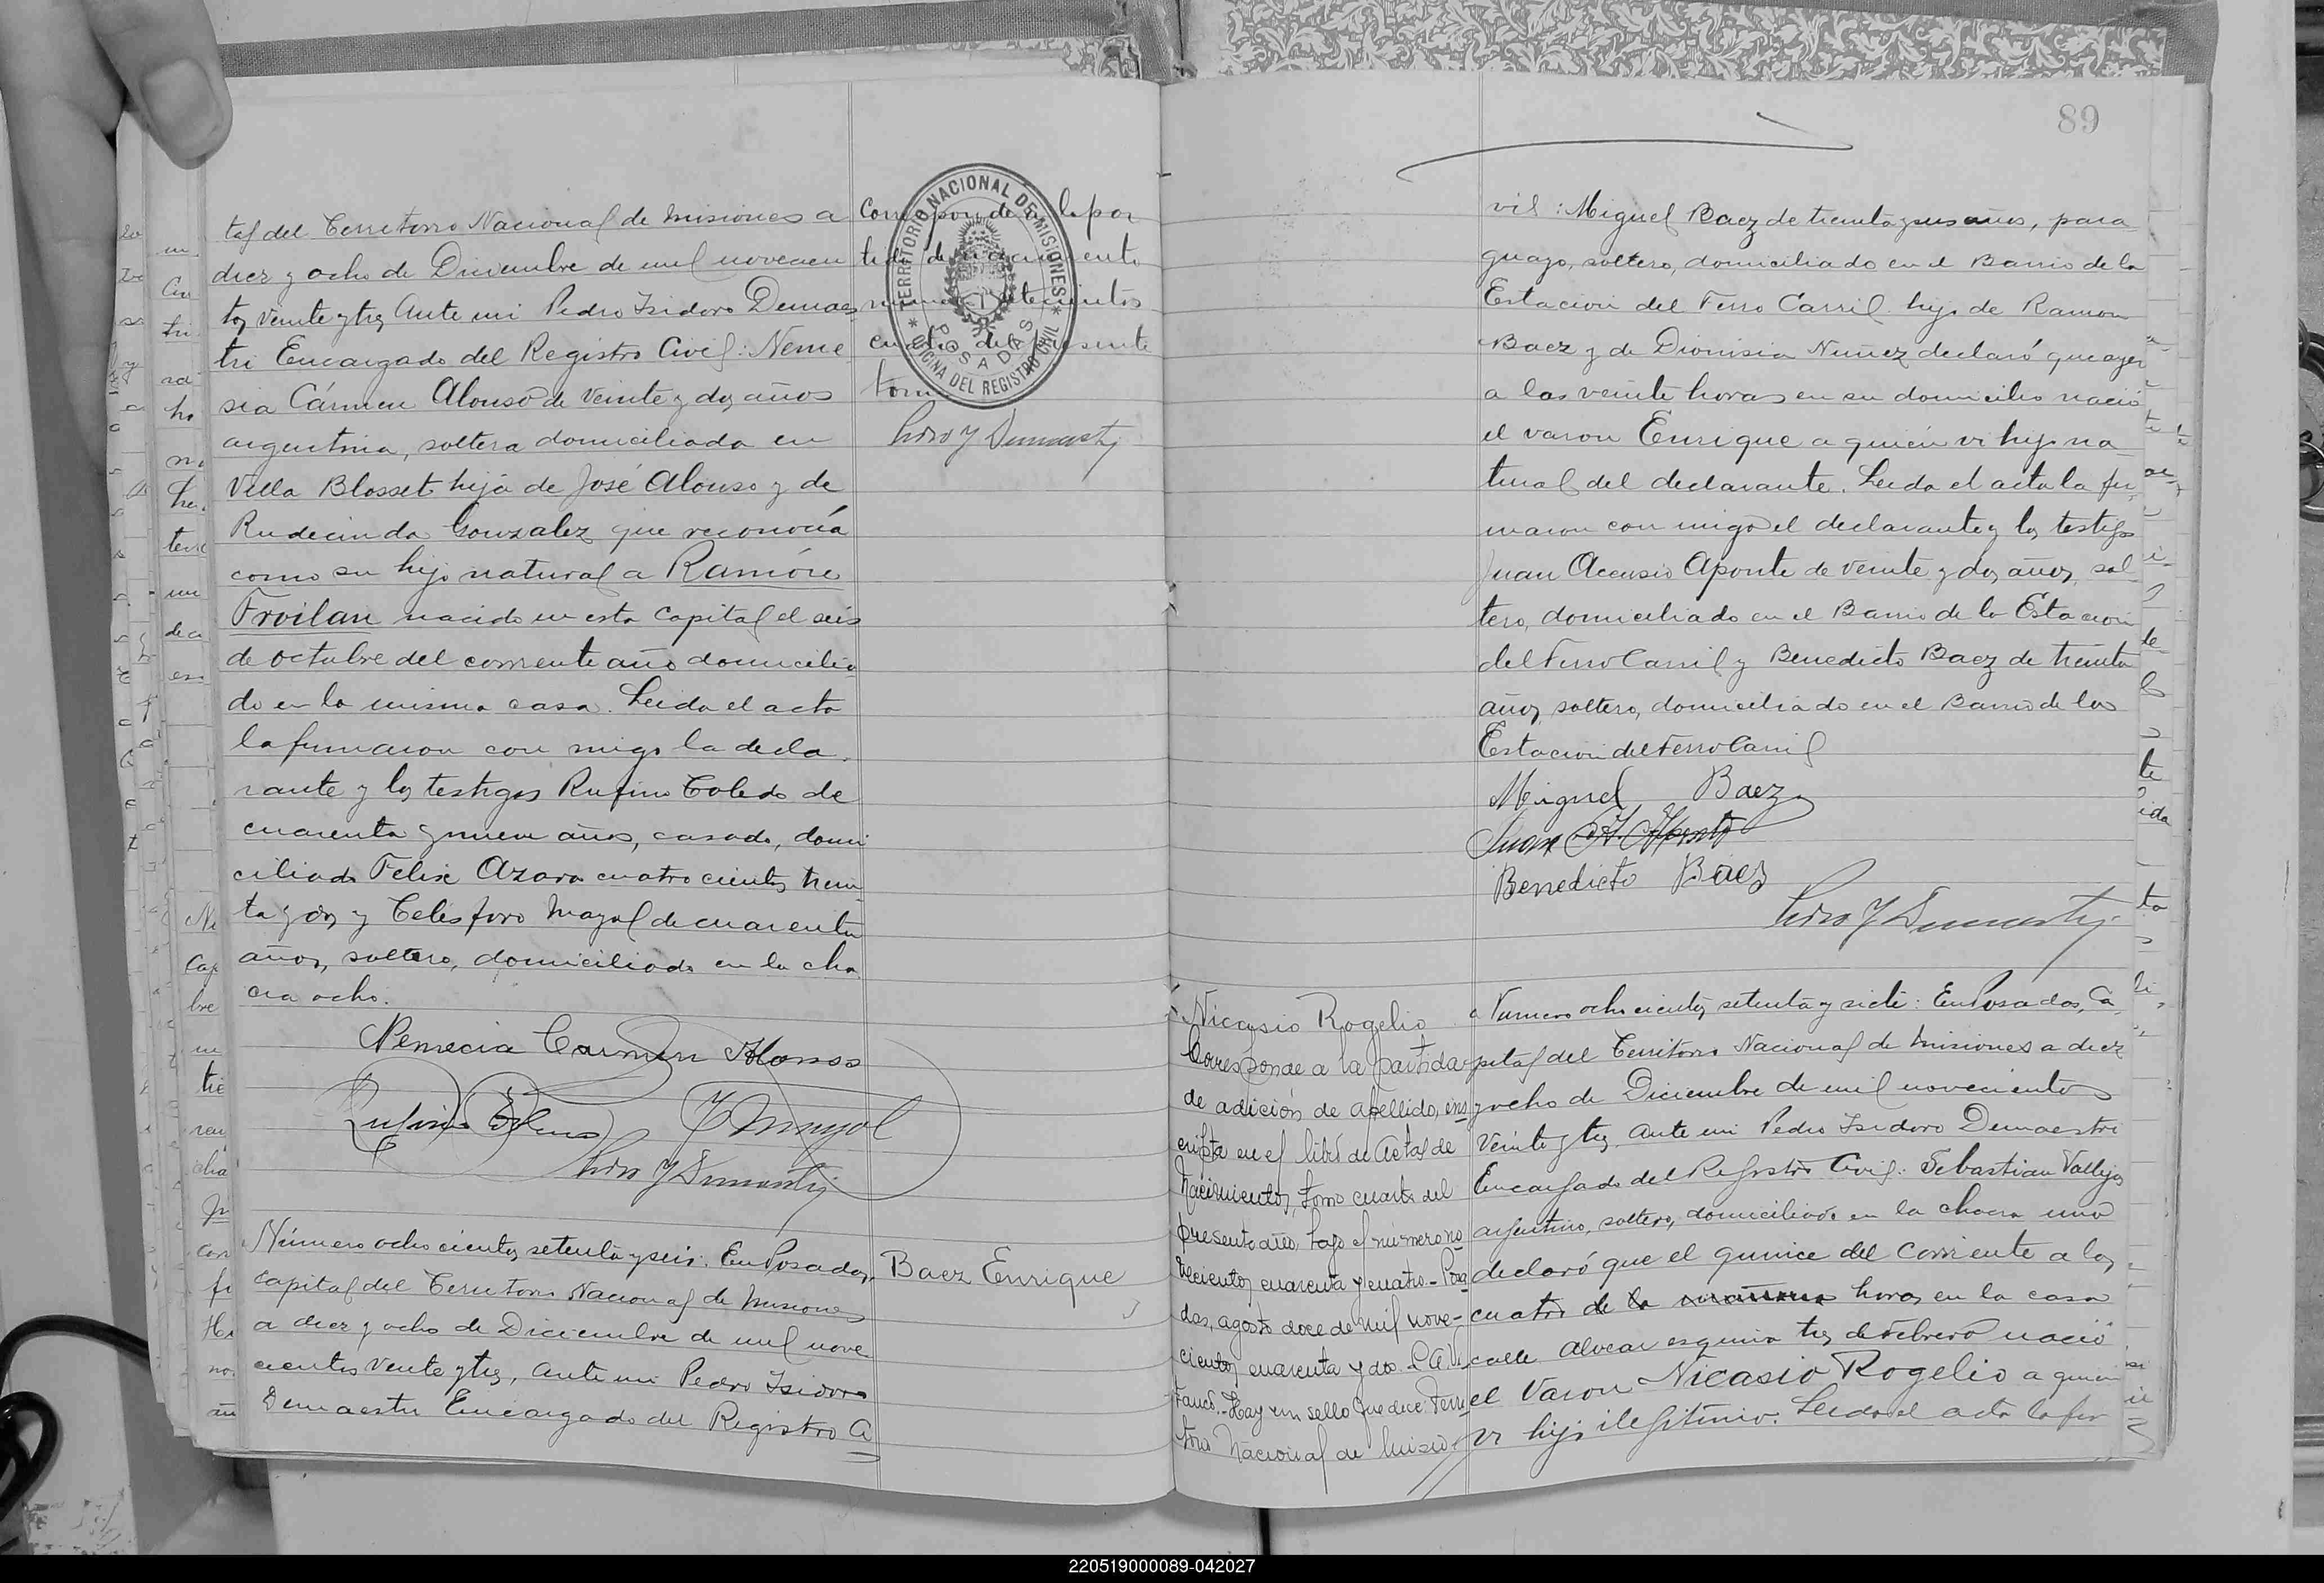 tal del Territorio Nacional de Misiones a
diez y ocho de Diciembre de mil novecien
tos veinte y tres Ante mi Pedro Isidoro Demaes
tri Encargado del Registro Civil: Neme
sia Cármen Alonso de veinte y dos años
argentina, soltera domiciliada en
Villa Blosset hija de José Alonso y de
Rudecinda Gonzalez que reconocía
como su hijo natural a Ramón
Froilan nacido en esta Capital el seis
de octubre del corriente año domicilia
do en la misma casa. Leida el acta
la firmaron con migo la decla
rante y los testigos Rufino Toledo de
cuarenta y nueve años, casado, domi
ciliado Felix Azara cuatrocientos trein
ta y dos y Telesforo Mayol de cuarenta
años, soltero, domiciliado en la cha
cra ocho.
Nemecia Carmen Alonso
Rufino Toledo T Mayol
Pedro Y Demaestri
Corresponde a la par
tida de nacimiento
número setecientos
cuatro del presente
tomo
Pedro Y Demaestri
TERRITORIO NACIONAL DE MISIONES
POSADAS
* OFICINA DEL REGISTRO CIVIL *
Número ochocientos setenta y seis: En Posadas,
Capital del Territorio Nacional de Misiones
a diez y ocho de Diciembre de mil nove
cientos veinte y tres, ante mi Pedro Isidoro
Demaestri Encargado del Registro Ci
Baez Enrique
89
vil: Miguel Baez de treinta y seis años, para
guayo, soltero, domiciliado en el Barrio de la
Estacion del Ferro Carril hijo de Ramon
Baez y de Dionisia Nuñez declaró que ayer
a las veinte horas en su domicilio nació
el varon Enrique a quien vi hijo na
tural del declarante. Leida el acta la fir
maron con migo el declarante y los testigos
Juan Acensio Aponte de veinte y dos años, sol
tero, domiciliado en el Barrio de la Estacion
del Ferro Carril y Benedicto Baez de treinta
años, soltero, domiciliado en el Barrio de la
Estacion del Ferro Carril
Miguel Baez
Juan A. Aponte
Benedicto Baez
Pedro Y Demaestri
Nicasio Rogelio
Corresponde a la partida
de adición de apellido, ins
cripta en el libro de Actas de
Nacimientos, tomo cuarto del
presente año, bajo el número no
vecientos cuarenta y cuatro.- Posa
das, agosto doce de mil nove-
cientos cuarenta y dos.
Hay un sello que dice: Terri
torio Nacional de Misio
Número ochocientos setenta y siete: En Posadas, Ca
pital del Territorio Nacional de Misiones a diez
y ocho de Diciembre de mil novecientos
veinte y tres, ante mi Pedro Isidoro Demaestri
Encargado del Registro Civil: Sebastian Vallejos
argentino, soltero, domiciliado en la chacra uno
declaró que el quince del corriente a las
cuatro de la mañana horas en la casa
calle Alvear esquina tres de Febrero nació
el Varon Nicasio Rogelio a quien
vi hijo ilegitimo. Leida el acta la fir
220519000089-042027